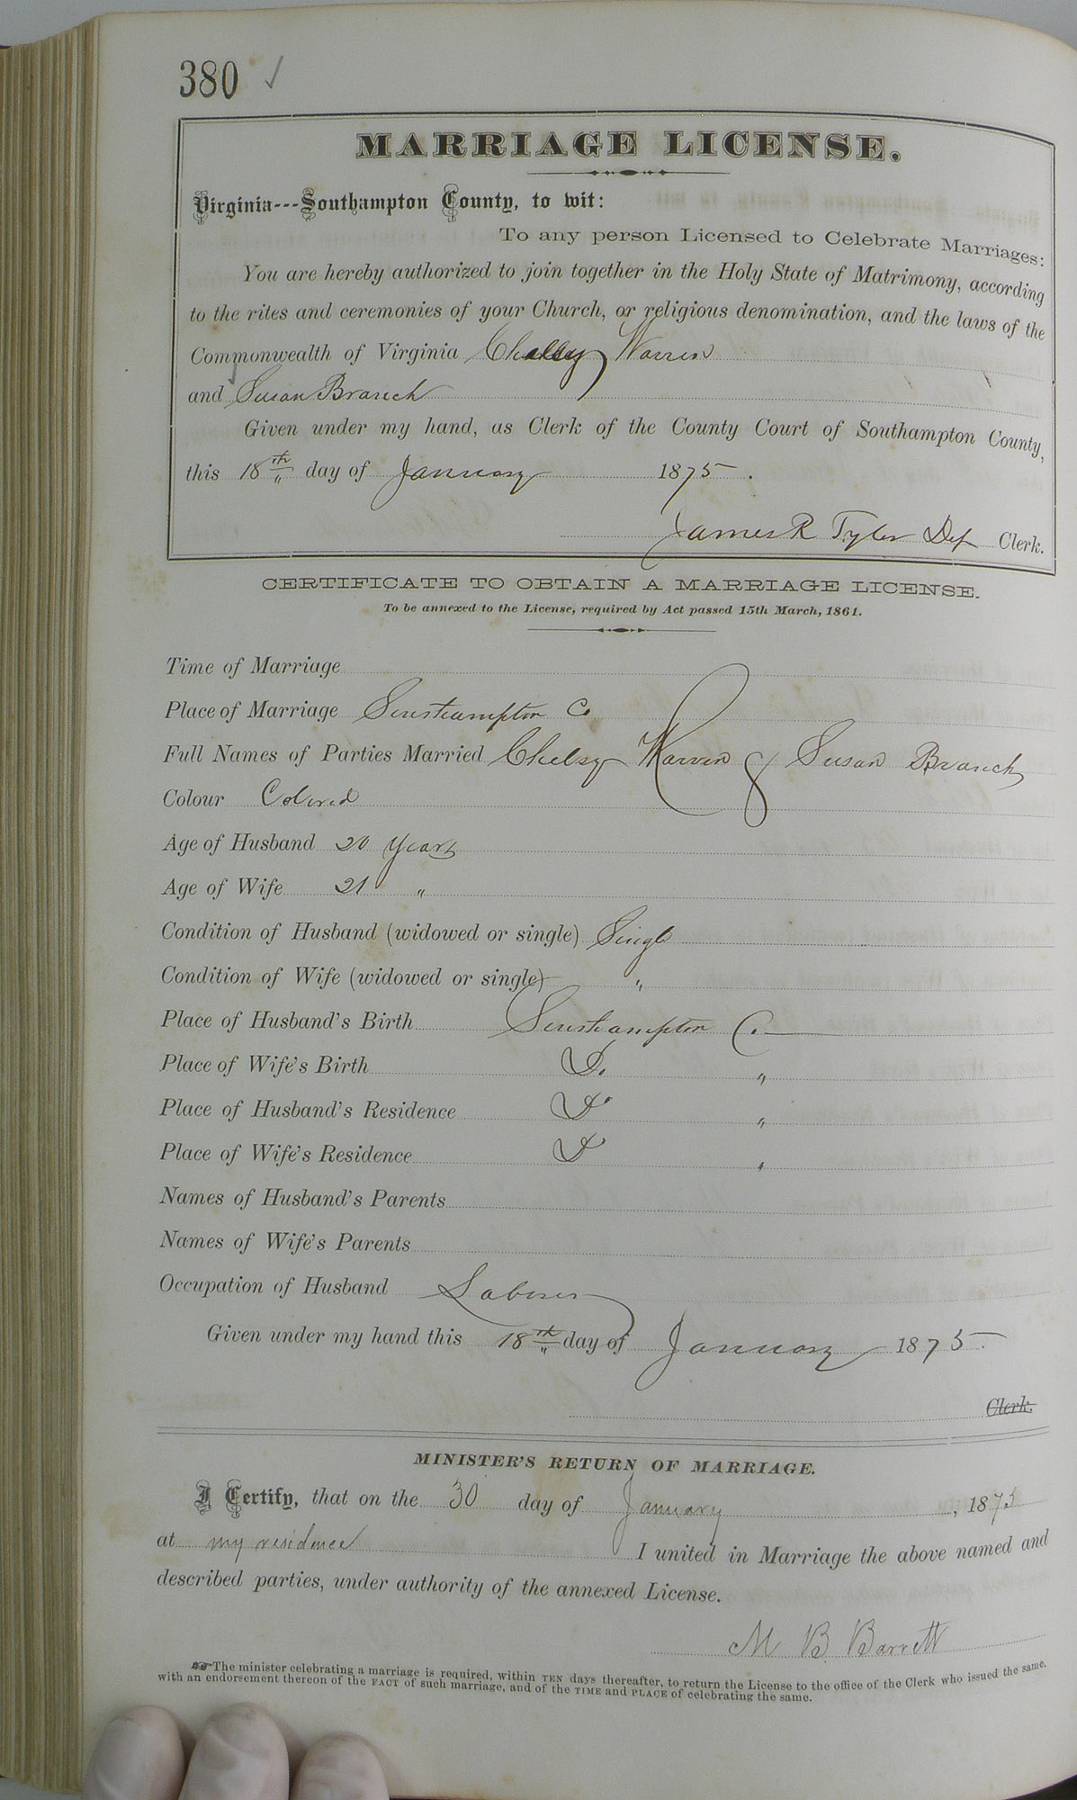 380 ✓
MARRIAGE LICENSE.
Virginia---Southampton County, to wit:
To any person Licensed to Celebrate Marriages:
You are hereby authorized to join together in the Holy State of Matrimony, according
to the rites and ceremonies of your Church, or religious denomination, and the laws of the
Commonwealth of Virginia Warren
and Susan Branch
Given under my hand, as Clerk of the County Court of Southampton County,
this 18th day of January 1875.
James R Tyler Dep Clerk.
CERTIFICATE TO OBTAIN A MARRIAGE LICENSE.
To be annexed to the License, required by Act passed 15th March, 1861.
Time of Marriage
Place of Marriage Southampton Co
Full Names of Parties Married Chelsy Warren & Susan Branch
Colour Colored
Age of Husband 20 Years
Age of Wife 21 "
Condition of Husband (widowed or single) Single
Condition of Wife (widowed or single) "
Place of Husband's Birth Southampton Co.
Place of Wife's Birth Do "
Place of Husband's Residence Do "
Place of Wife's Residence Do "
Names of Husband's Parents
Names of Wife's Parents
Occupation of Husband Laborer
Given under my hand this 18th day of January 1875.
Clerk.
MINISTER'S RETURN OF MARRIAGE.
I Certify, that on the 30 day of January, 1875
at my residence I united in Marriage the above named and
described parties, under authority of the annexed License.
M B Barrett
☞The minister celebrating a marriage is required, within TEN days thereafter, to return the License to the office of the Clerk who issued the same,
with an endorsement thereon of the FACT of such marriage, and of the TIME and PLACE of celebrating the same.